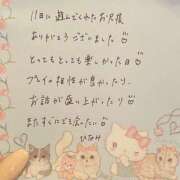 11日に遊んでくれたお兄様
ありがとうございました
とってもとっても楽しかった日
プレイの相性が良かったり
お話が盛り上がったり
またすぐにでも会いたい
ひなみ